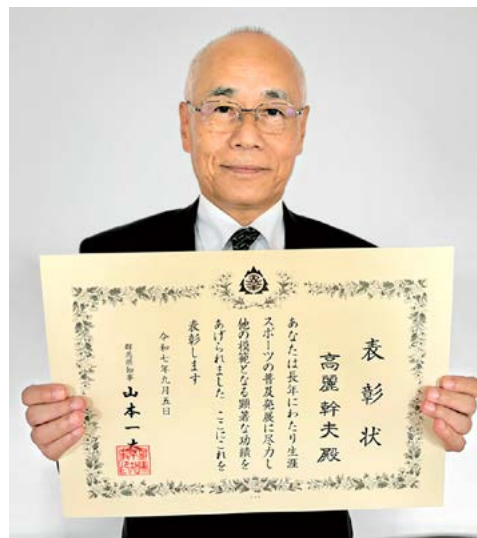 表彰状
高麗幹夫殿
あなたは長年にわたり生涯
スポーツの普及発展に尽力し
他の模範となる顕著な功績を
あげられました ここにこれを
表彰します
令和七年九月五日
群馬県知事 山本一太